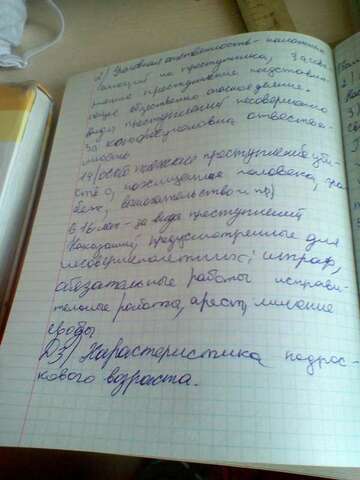 2) Уголовная ответственность - наложение
санкций на преступника, за сове
преступление представля-
ющее общественно опасное деяние.
виды преступлений несовершенно
за которые уголовна ответстве-
14 (особо тяжкие преступления уби-
ств о, похищенная человека, гра
беж, вымогательство и пр)
с 16 лет - за все виды преступлений
Наказания, предусмотренные для
несовершеннолетнего; штраф,
обязательные работы исправи-
тельные работы, арест, лишение
свободы
Д.З) Характеристика подрос-
кового возраста.